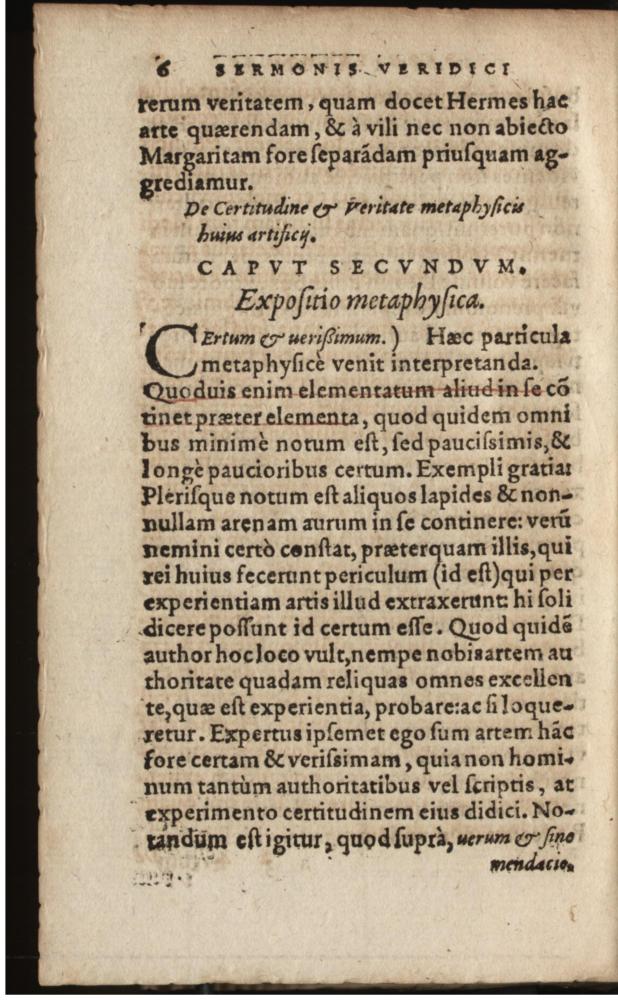 6 SERMONIS VERIDICI
rerum veritatem, quam docet Hermes hac
arte quærendam, & à vili nec non abiecto
Margaritam fore ſeparãdam priuſquam ag-
grediamur.
De Certitudine & veritate metaphyſicis
huius artificij.
CAPVT SECVNDVM.
Expoſitio metaphyſica.
CErtum & ueriſſimum.) Hæc particula
metaphyſicè venit interpretanda.
Quoduis enim elementatum aliud in ſe cõ
tinet præter elementa, quod quidem omni
bus minimè notum eſt, ſed pauciſsimis, &
longè paucioribus certum. Exempli gratia:
Pleriſque notum eſt aliquos lapides & non-
nullam arenam aurum in ſe continere: verũ
nemini certò conſtat, præterquam illis, qui
rei huius fecerunt periculum (id eſt) qui per
experientiam artis illud extraxerunt: hi ſoli
dicere poſſunt id certum eſſe. Quod quidẽ
author hoc loco vult, nempe nobis artem au
thoritate quadam reliquas omnes excellen
te, quæ eſt experientia, probare: ac ſi loque-
retur. Expertus ipſemet ego ſum artem hãc
fore certam & veriſsimam, quia non homi-
num tantùm authoritatibus vel ſcriptis, at
experimento certitudinem eius didici. No-
tandum eſt igitur, quod ſuprà, uerum & ſine
mendacio.